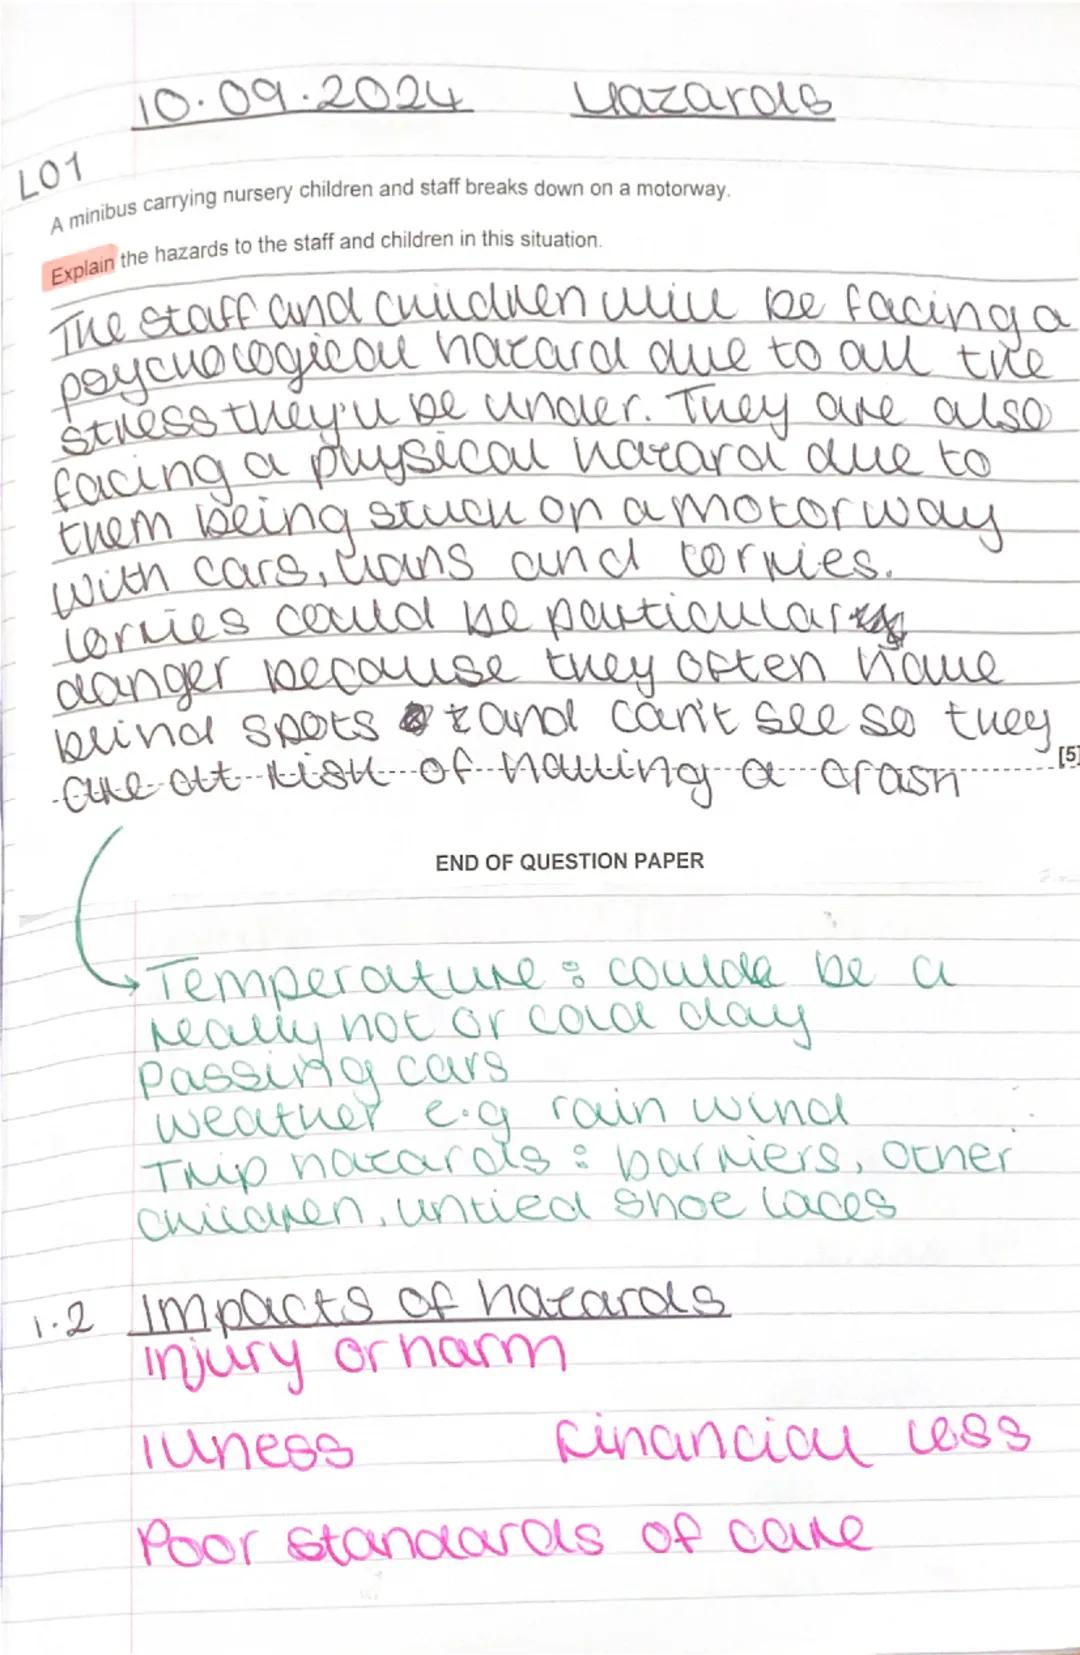 10.09.2024 Hazards
LO1
A minibus carrying nursery children and staff breaks down on a motorway.
Explain the hazards to the staff and children in this situation.
The staff and children will be facing a
psychological hazard due to all the
stress they'll be under. They are also
facing a physical hazard due to
them being stuck on a motorway
with cars, vans and lorries.
lorries could be particular
danger because they often have
blind spots and can't see so they
are att risk of having a crash
[5]
END OF QUESTION PAPER
Temperature: could be a
really hot or cold day
Passing cars
weather e.g rain wind
Trip hazards: barriers, other
children, untied shoe laces
1.2 Impacts of hazards
injury or harm
illness financial loss
Poor standards of care